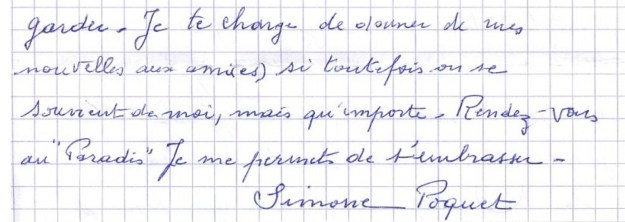 garder. Je te charge de donner de mes
nouvelles aux ami(es) si toutefois on se
souvient de moi, mais qu'importe. Rendez-vous
au "Paradis" Je me permets de t'embrasser -
Simone Poquet